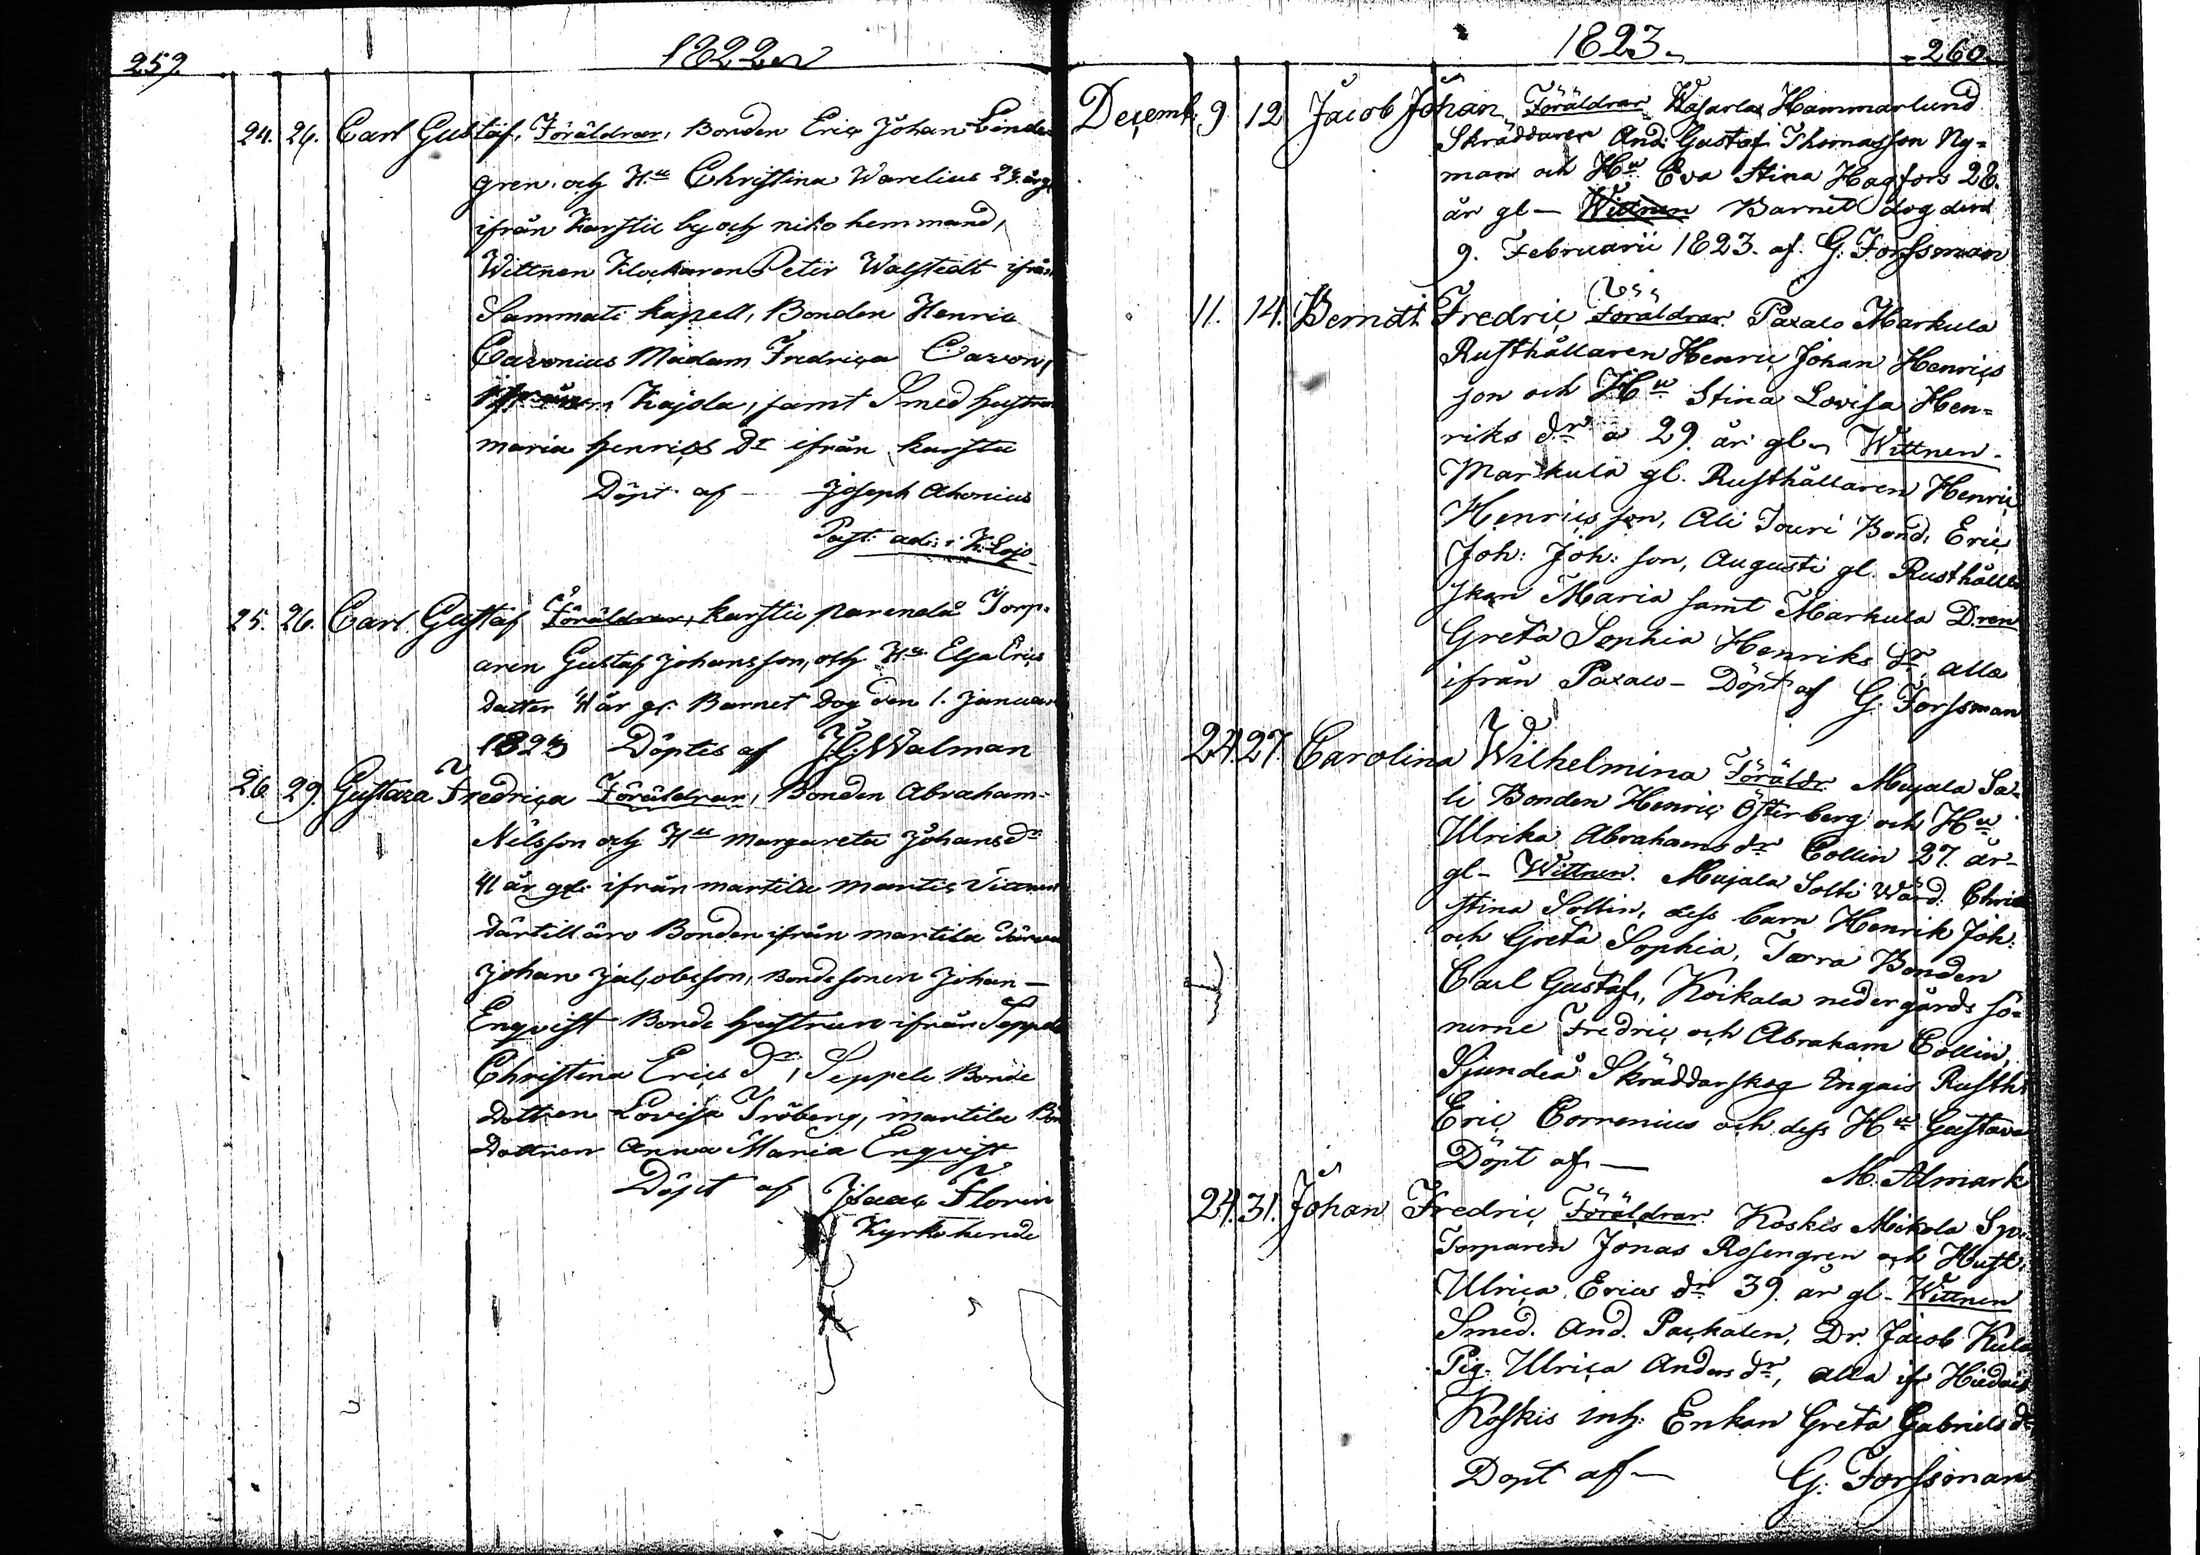 259.
1822
24. 26. Carl Gustaf, Föräldrar, Bonden Eric Johan Linde
gren. och H:u Christina Warelius 29. år gl
ifrån Karstu by och niko hemmand,
Wittnen Klockaren Peter Walstedt ifrån
Sammati kapell, Bonden Henric
Cavonius Madam Fredrica Cavon,
ifrån Kajola, samt Smed hustrun
maria henrics Dr ifrån karstu
Döpt af - Joseph Ahonius
Past: adj: i K: Lojo
25. 26. Carl Gustaf Föräldrar, karstu parendå Torp-
aren Gustaf Johansson, och H:u Elsa Erics
datter 41 år gl. Barnet dog den 1. Januar
1823 Döptes af J. G. Walman
26 29. Gustava Fredrica Föräldrar, Bonden Abraham-
Nilsson och H:u Margareta Johans Dr
41 år gl: ifrån martila mantis Vittnen
därtill äro Bonden ifrån martila
Johan Jacobsson, Bondesonen Johan -
Enqvist Bonde hustrun ifrån Seppele
Christina Erics Dr, Seppele Bonde
dottren Lovisa Fröberg, martila Bon
dottren Anna Maria Enqvist
Döpt af Isaac Florin
Kyrkoherde
1823.
260.
Decemb. 9 12 Jacob Johan, Föräldrar Wasarla Hammarlund
Skräddaren And: Gustaf Thomasson Ny-
man och H:u Eva Stina Hagfors 28.
år gl - Wittnen Barnet dog den
9. Februarii 1823. af. G. Forssman
11. 14. Berndt Fredric Föräldrar. Paxalo Markula
Rusthållaren Henric Johan Henrics
son och H:u Stina Lovisa Hen-
riks dr a 29. år gl - Wittnen.
Markula gl. Rusthållaren Henric
Henricsson, Ali Jouri Bond. Eric
Joh: Joh: son, Augusti gl. Rusthålla
skan Maria samt Markula D:ren
Greta Sophia Henriks dr, alla
ifrån Paxalo - Döpt af G. Forssman
24. 27. Carolina Wilhelmina Föräldr. Maijala Sa-
li Bonden Henric Österberg och H:u
Ulrika Abrahams dr Collin 27. år
gl - Wittnen. Maijala Solti Wärd. Chris
stina Soltin, dess barn Henrik Joh:
och Greta Sophia, Tarra Bonden
Carl Gustaf, Koikala nedergårds sö-
nerne Fredric och Abraham Collin,
Sjundeå Skräddarskog Engais Rusth
Eric Cornenius och dess H:u Gustava
Döpt af - M. Almark
24. 31. Johan Fredric Föräldrar. Koskis Mikola Sp.
Torparen Jonas Rosengren och Hust.
Ulrica Erics dr 39. år gl - Wittnen
Smed. And. Packalen, Dr. Jacob
Pig. Ulrica Anders dr, alla ifr Hiidais
Koskis inh: Enkan Greta Gabriels dr
Döpt af - G. Forssman